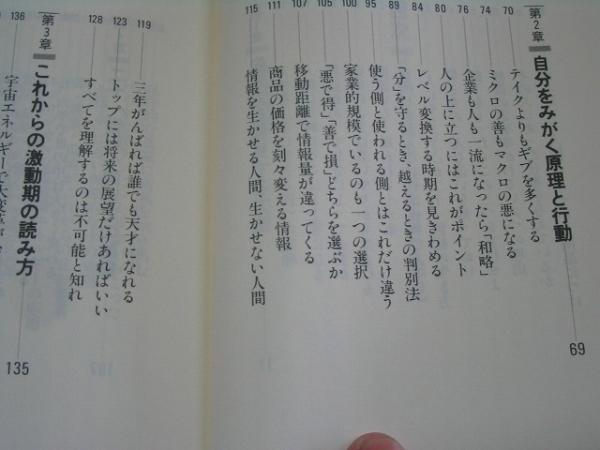 第2章 自分をみがく原理と行動 69
70 テイクよりもギブを多くする
74 ミクロの善もマクロの悪になる
76 企業も人も一流になったら「和略」
80 人の上に立つにはこれがポイント
84 レベル変換する時期を見きわめる
89 「分」を守るとき、越えるときの判別法
95 使う側と使われる側とはこれだけ違う
100 家業的規模でいるのも一つの選択
105 「悪で得」「善で損」どちらを選ぶか
107 移動距離で情報量が違ってくる
111 商品の価格を刻々変える情報
115 情報を生かせる人間、生かせない人間
119 三年がんばれば誰でも天才になれる
123 トップには将来の展望だけあればいい
128 すべてを理解するのは不可能と知れ
第3章 これからの激動期の読み方 135
136 宇宙エネルギーで大変革が